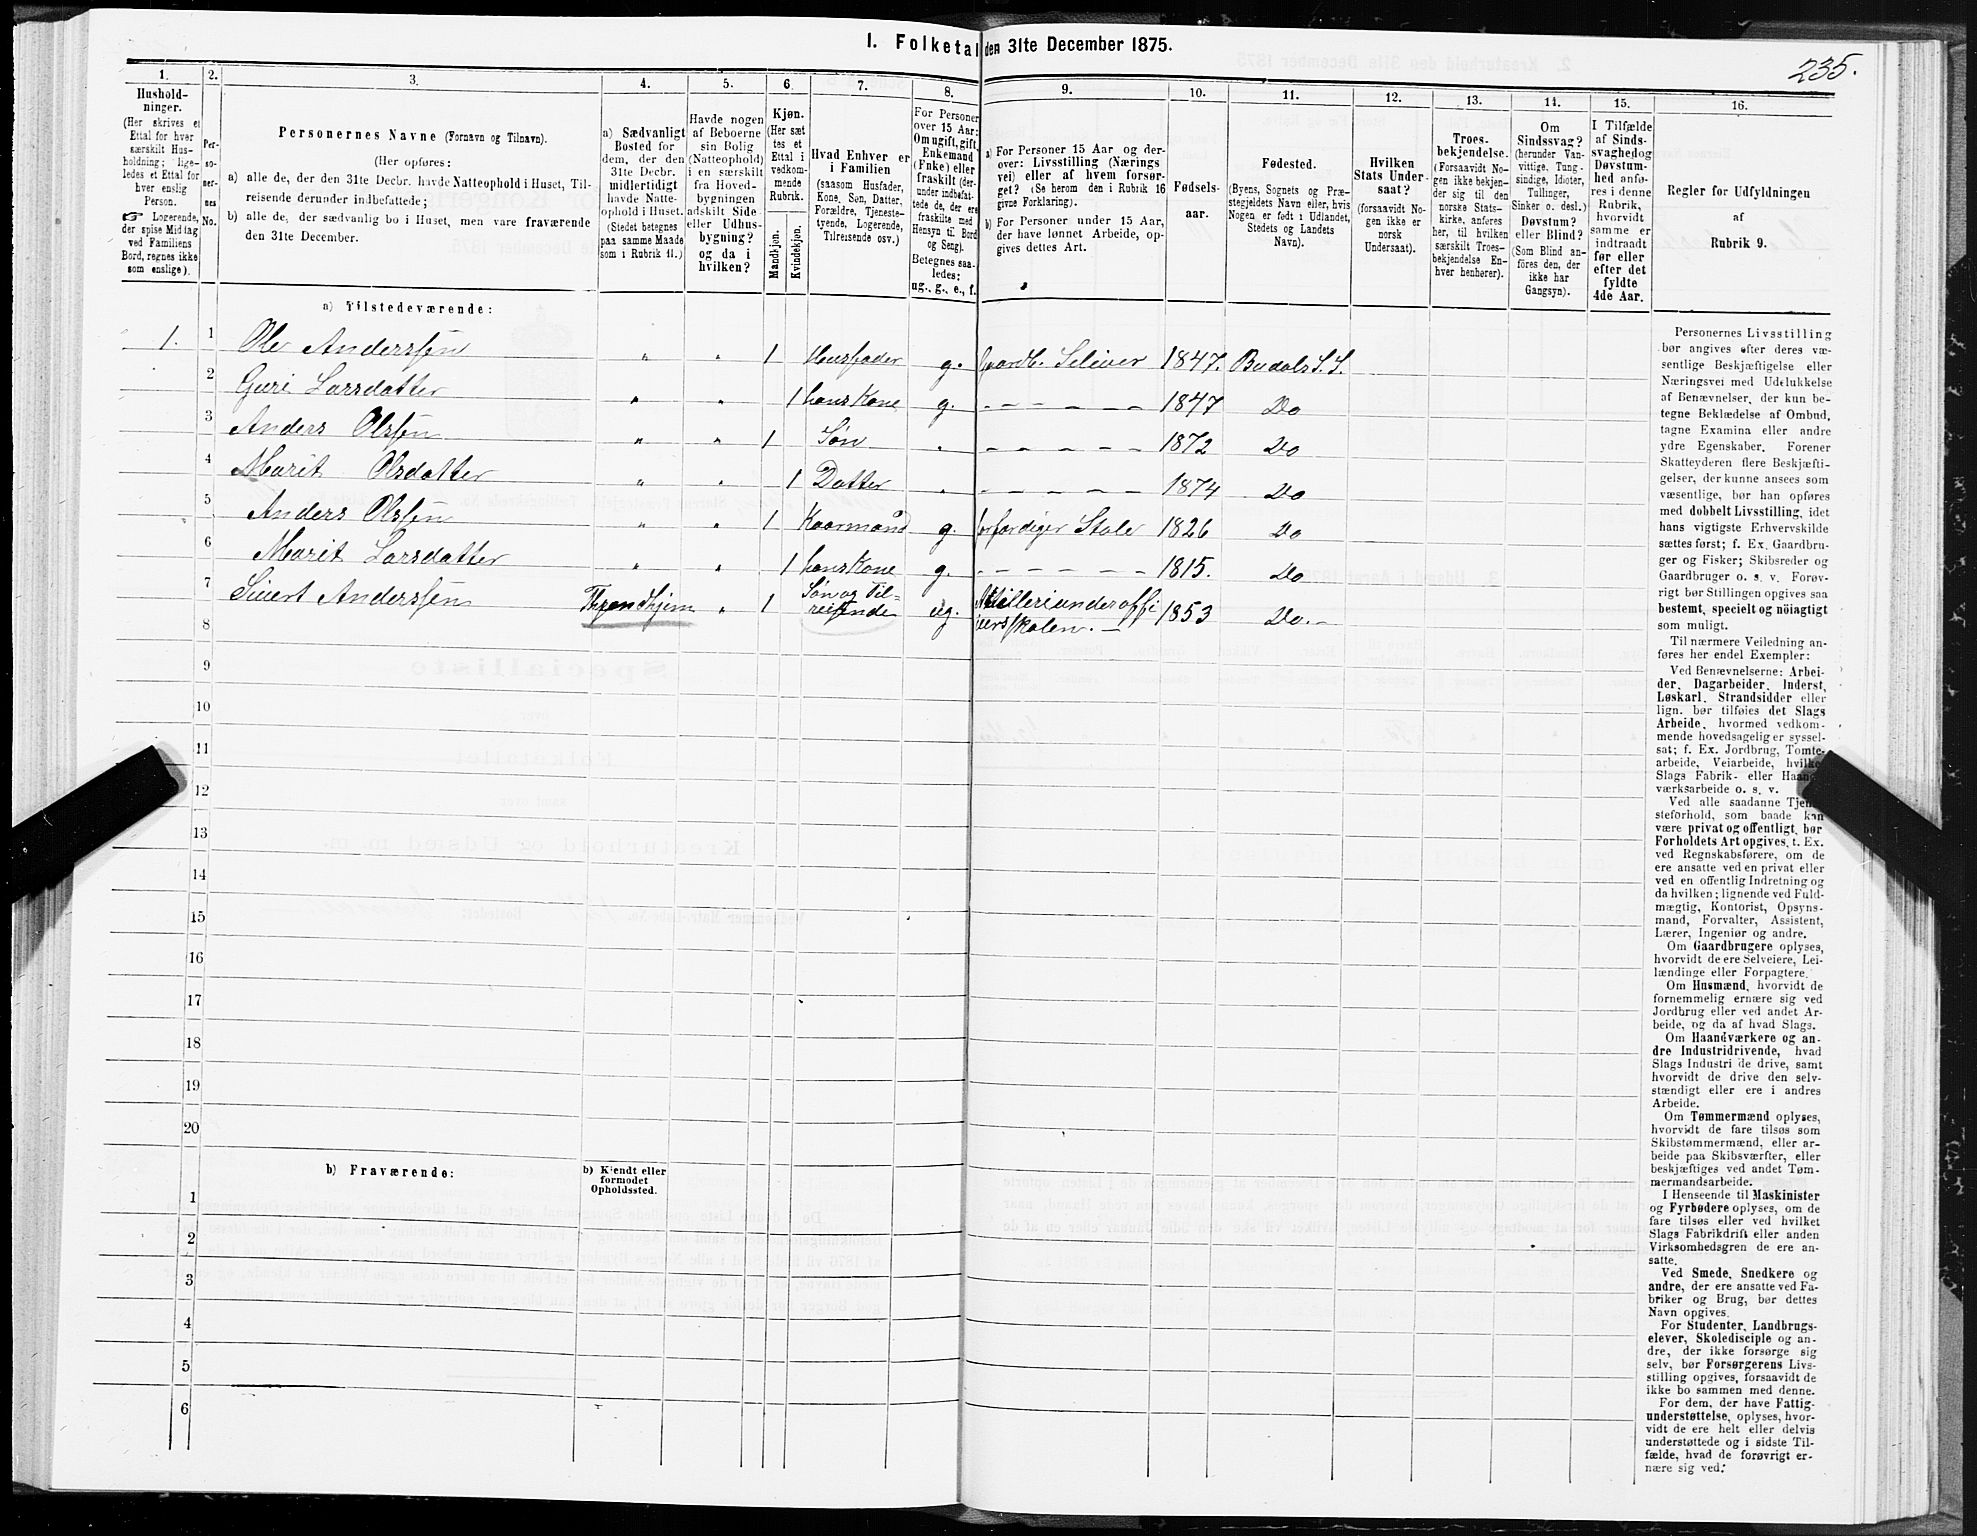 I. Folketal den 31te December 1875.
235.
1.
Hushold-
ninger.
(Her skrives et
Ettal for hver
særskilt Hus-
holdning; lige-
ledes et Ettal for
hver enslig
Person.
☞ Logerende,
der spise Middag
ved Familiens
Bord, regnes ikke
som enslige).
2.
Per-
so-
ner-
nes
No.
3.
Personernes Navne (Fornavn og Tilnavn).
(Her opføres:
a) alle de, der den 31te Decbr. havde Natteophold i Huset, Til-
reisende derunder indbefattede;
b) alle de, der sædvanlig bo i Huset, men vare fraværende
den 31te December.
4.
a) Sædvanligt
Bosted for
dem, der den
31te Decbr.
midlertidigt
havde Natte-
ophold i Huset.
(Stedet betegnes
paa samme Maade
som i Rubrik 11.)
5.
Havde nogen
af Beboerne
sin Bolig
(Natteophold)
i en særskilt
fra Hoved-
bygningen
adskilt Side-
eller Udhus-
bygning?
og da i
hvilken?
6.
Kjøn.
(Her sæt-
tes et
Ettal i
vedkom-
mende
Rubrik.
Mandkjøn.
Kvindekjøn.
7.
Hvad Enhver er
i Familien
(saasom Husfader,
Kone, Søn, Datter,
Forældre, Tjeneste-
tyende, Logerende,
Tilreisende osv.)
8.
For Personer
over 15 Aar:
Om ugift, gift,
Enkemand
(Enke) eller
fraskilt (der-
under indbefat-
tede de, der ere
fraskilte med
Hensyn til Bord
og Seng).
Betegnes saa-
ledes:
ug., g., e., f.
9.
a) For Personer 15 Aar og der-
over: Livsstilling (Nærings-
vei) eller af hvem forsør-
get? (Se herom den i Rubrik 16
givne Forklaring).
b) For Personer under 15 Aar,
der have lønnet Arbeide, op-
gives dettes Art.
10.
Fødsels-
aar.
11.
Fødested.
(Byens, Sognets og Præ-
stegjeldets Navn eller, hvis
Nogen er født i Udlandet,
Stedets og Landets
Navn).
12.
Hvilken
Stats Under-
saat?
(forsaavidt No-
gen ikke er
norsk
Undersaat).
13.
Troes-
bekjendelse.
(Forsaavidt No-
gen ikke bekjen-
der sig til den
norske Stats-
kirke, anføres
her, til hvilken
særskilt Troes-
bekjendelse En-
hver henhører).
14.
Om
Sindssvag?
(herunder Van-
vittige, Tung-
sindige, Idioter,
Tullinger,
Sinker o. desl.)
Døvstum?
eller Blind?
(Som Blind an-
føres den, der
ikke har
Gangsyn).
15.
I Tilfælde
af Sinds-
svaghed og
Døvstum-
hed anfø-
res i denne
Rubrik,
hvorvidt
samme er
indtraadt
før eller
efter det
fyldte
4de Aar.
16.
Regler for Udfyldningen
af
Rubrik 9.
a) Tilstedeværende:
1. 1 Ole Anderssen " " 1 Husfader g. Gaardb. Seleier 1847. Budals S.S.
2 Guri Larsdatter " " 1 hans Kone g. – – – – – 1847 Do
3 Anders Olssen " " 1 Søn " – – – – – 1872 Do
4 Marit Olsdatter " " 1 Datter " – – – – – 1874 Do
5 Anders Olssen " " 1 Kaarmand g. forfærdiger Stole 1826 Do
6 Marit Larsdatter " " 1 hans Kone g. – – – – – – 1815. Do
7 Siuert Anderssen Throndhjem " 1 Søn og Til-
reisende ug. Artilleriunderoffi
siersskolen. – 1853 Do. –
8
9
10
11
12
13
14
15
16
17
18
19
20
b) Fraværende:
b) Kjendt eller
formodet
Opholdssted.
1
2
3
4
5
6
Personernes Livsstilling
bør angives efter deres væ-
sentlige Beskjæftigelse eller
Næringsvei med Udelukkelse
af Benævnelser, der kun be-
tegne Beklædelse af Ombud,
tagne Examina eller andre
ydre Egenskaber. Forener
Skatteyderen flere Beskjæfti-
gelser, der kunne ansees som
væsentlige, bør han opføres
med dobbelt Livsstilling, idet
hans vigtigste Erhvervskilde
sættes først; f. Ex. Gaardbru-
ger og Fisker; Skibsreder og
Gaardbruger o. s. v. Forøv-
rigt bør Stillingen opgives saa
bestemt, specielt og nöiagtigt
som muligt.
Til nærmere Veiledning an-
føres her endel Exempler:
Ved Benævnelserne: Arbei-
der, Dagarbeider, Inderst,
Løskarl, Strandsidder eller
lign. bør tilføies det Slags
Arbeide, hvormed vedkom-
mende hovedsagelig er syssel-
sat; f. Ex. Jordbrug, Tomte-
arbeide, Veiarbeide, hvilket
Slags Fabrik- eller Haand-
værksarbeide o. s. v.
Ved alle saadanne Tjene-
steforhold, som baade kan
være privat og offentligt, bør
Forholdets Art opgives, f. Ex.
ved Regnskabsførere, om de
ere ansatte ved en privat eller
ved en offentlig Indretning og
da hvilken; lignende ved Fuld-
mægtig, Kontorist, Opsyns-
mand, Forvalter, Assistent,
Lærer, Ingeniør og andre.
Om Gaardbrugere oplyses,
hvorvidt de ere Selveiere, Lei-
lændinge eller Forpagtere.
Om Husmænd, hvorvidt de
fornemmelig ernære sig ved
Jordbrug eller ved andet Ar-
beide, og da af hvad Slags.
Om Haandværkere og an-
dre Industridrivende, hvad
Slags Industri de drive, samt
hvorvidt de drive den selv-
stændigt eller ere i andres
Arbeide.
Om Tømmermænd oplyses,
hvorvidt de fare tilsøs som
Skibstømmermænd, eller ar-
beide paa Skibsværfter, eller
beskjæftiges ved andet Tøm-
mermandsarbeide.
I Henseende til Maskinister
og Fyrbødere oplyses, om de
fare tilsøs eller ved hvilket
Slags Fabrikdrift eller anden
Virksomhedsgren de ere an-
satte.
Ved Smede, Snedkere og
andre, der ere ansatte ved Fa-
briker og Brug, bør dettes
Navn opgives.
For Studenter, Landbrugs-
elever, Skoledisciple og an-
dre, der ikke forsørge sig
selv, bør Forsørgerens Livs-
stilling opgives, forsaavidt de
ikke bo sammen med denne.
For dem, der have Fattig-
understøttelse, oplyses, hvor-
vidt de ere helt eller delvis
understøttede og i sidste Til-
fælde, hvad de forøvrigt er-
nære sig ved.